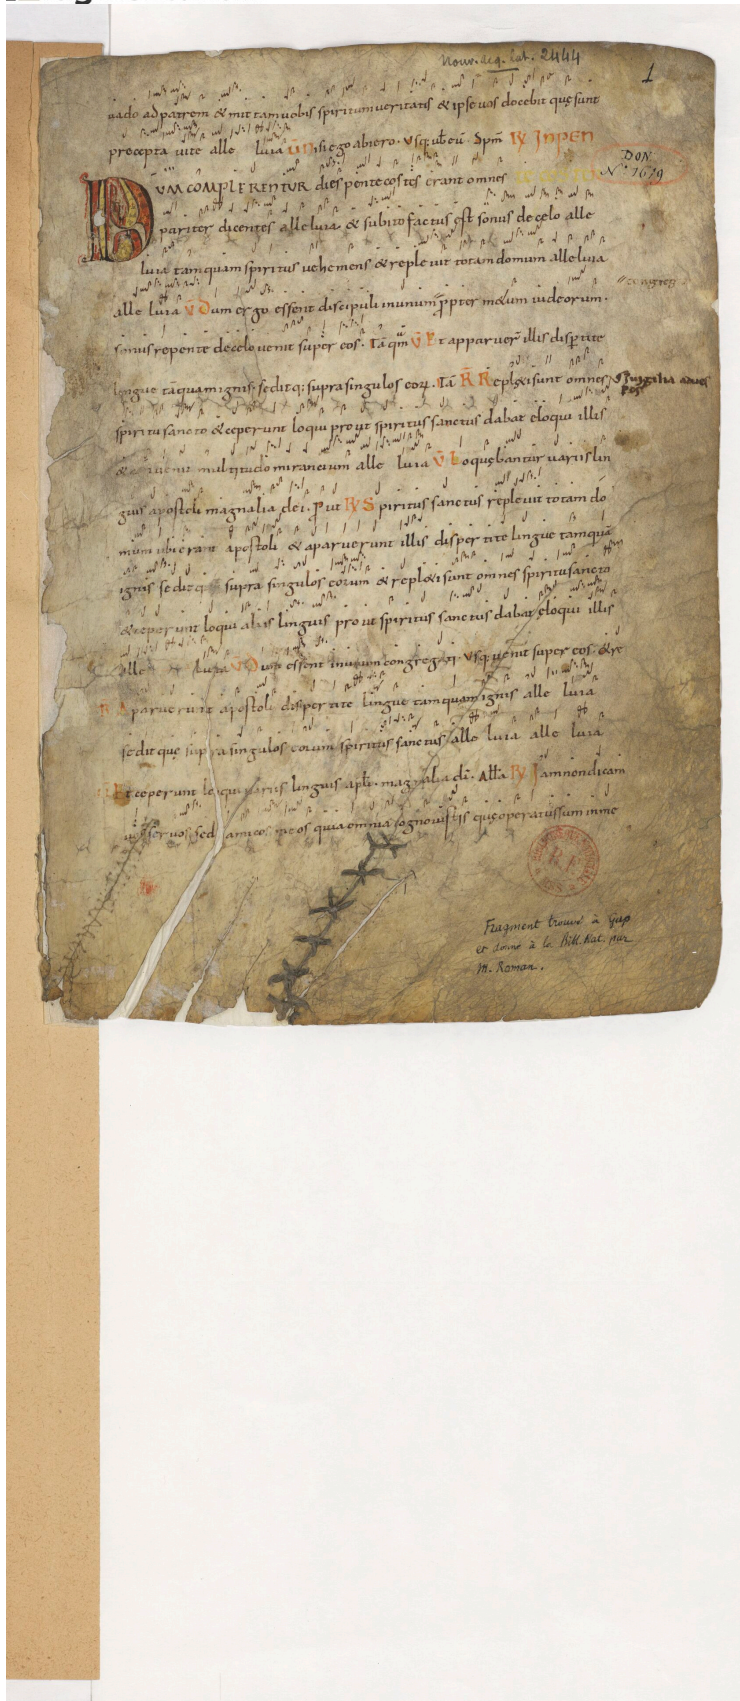 Nouv. acq. lat. 2444
1
uado ad patrem & mittam uobis spiritum ueritatis & ipse uos docebit quę sunt
precepta uite alle luia V̄ Nisi ego abiero. Vsq; ub̄ eū. Sp̄m R̷ IN PEN
DON
N° 1679
DUM COMPLERENTUR dies pentecostes erant omnes
pariter dicentes alleluia & subito factus est sonus de celo alle
luia tamquam spiritus uehemens & repleuit totam domum alleluia
alle luia V̄ Dum ergo essent discipuli in unum p̄pter m&um iudeorum.
sonus repente de celo uenit super eos. Tāqm̄ V̄ Et apparuer̄ illis disp̄tite
lingue tāquam ignis. seditq; supra singulos eoꝝ. Tā R̄ Repl&i sunt omnes
spiritu sancto & ceperunt loqui prout spiritus sanctus dabat eloqui illis
& conuenit multitudo mirancium alle luia V̄ Loquębantur uariis lin
guis apostoli magnalia dei. P̄ut R̷ Spiritus sanctus repleuit totam do
mum ubi erant apostoli & aparuerunt illis dispertite lingue tamquā
ignis seditq; supra singulos eorum & repl&i sunt omnes spiritu sancto
& ceperunt loqui aliis linguis prout spiritus sanctus dabat eloqui illis
alle luia V̄ Dum essent in unum congregati. Vsq; uenit super eos. &ce
R̷ Aparuerunt apostoli dispertite lingue tamquam ignis alle luia
seditquę supra singulos eorum spiritus sanctus alle luia alle luia
Et ceperunt loqui uariis linguis apl̄i. magnalia dī. All̄a R̷ Iam non dicam
uos seruos sed amicos meos quia omnia cognouistis quę operatus sum in me
R F
Fragment trouvé à Gap
et donné à la Bibl. Nat. par
M. Roman.